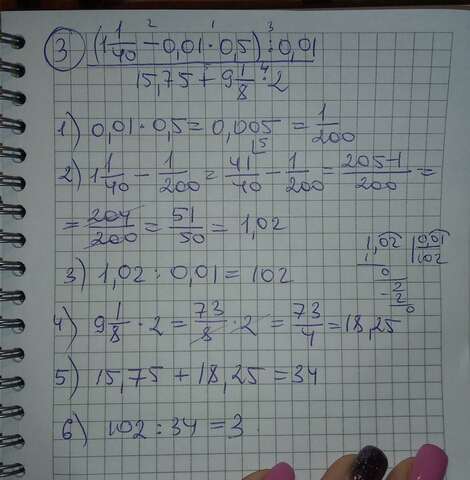 ③ (1 1/40 - 0,01 · 0,5) : 0,01
15,75 + 9 1/8 · 2
1) 0,01 · 0,5 = 0,005 = 1/200
2) 1 1/40 - 1/200 = 41/40 - 1/200 = 205-1/200 =
= 204/200 = 51/50 = 1,02
3) 1,02 : 0,01 = 102
4) 9 1/8 · 2 = 73/8 · 2 = 73/4 = 18,25
5) 15,75 + 18,25 = 34
6) 102 : 34 = 3